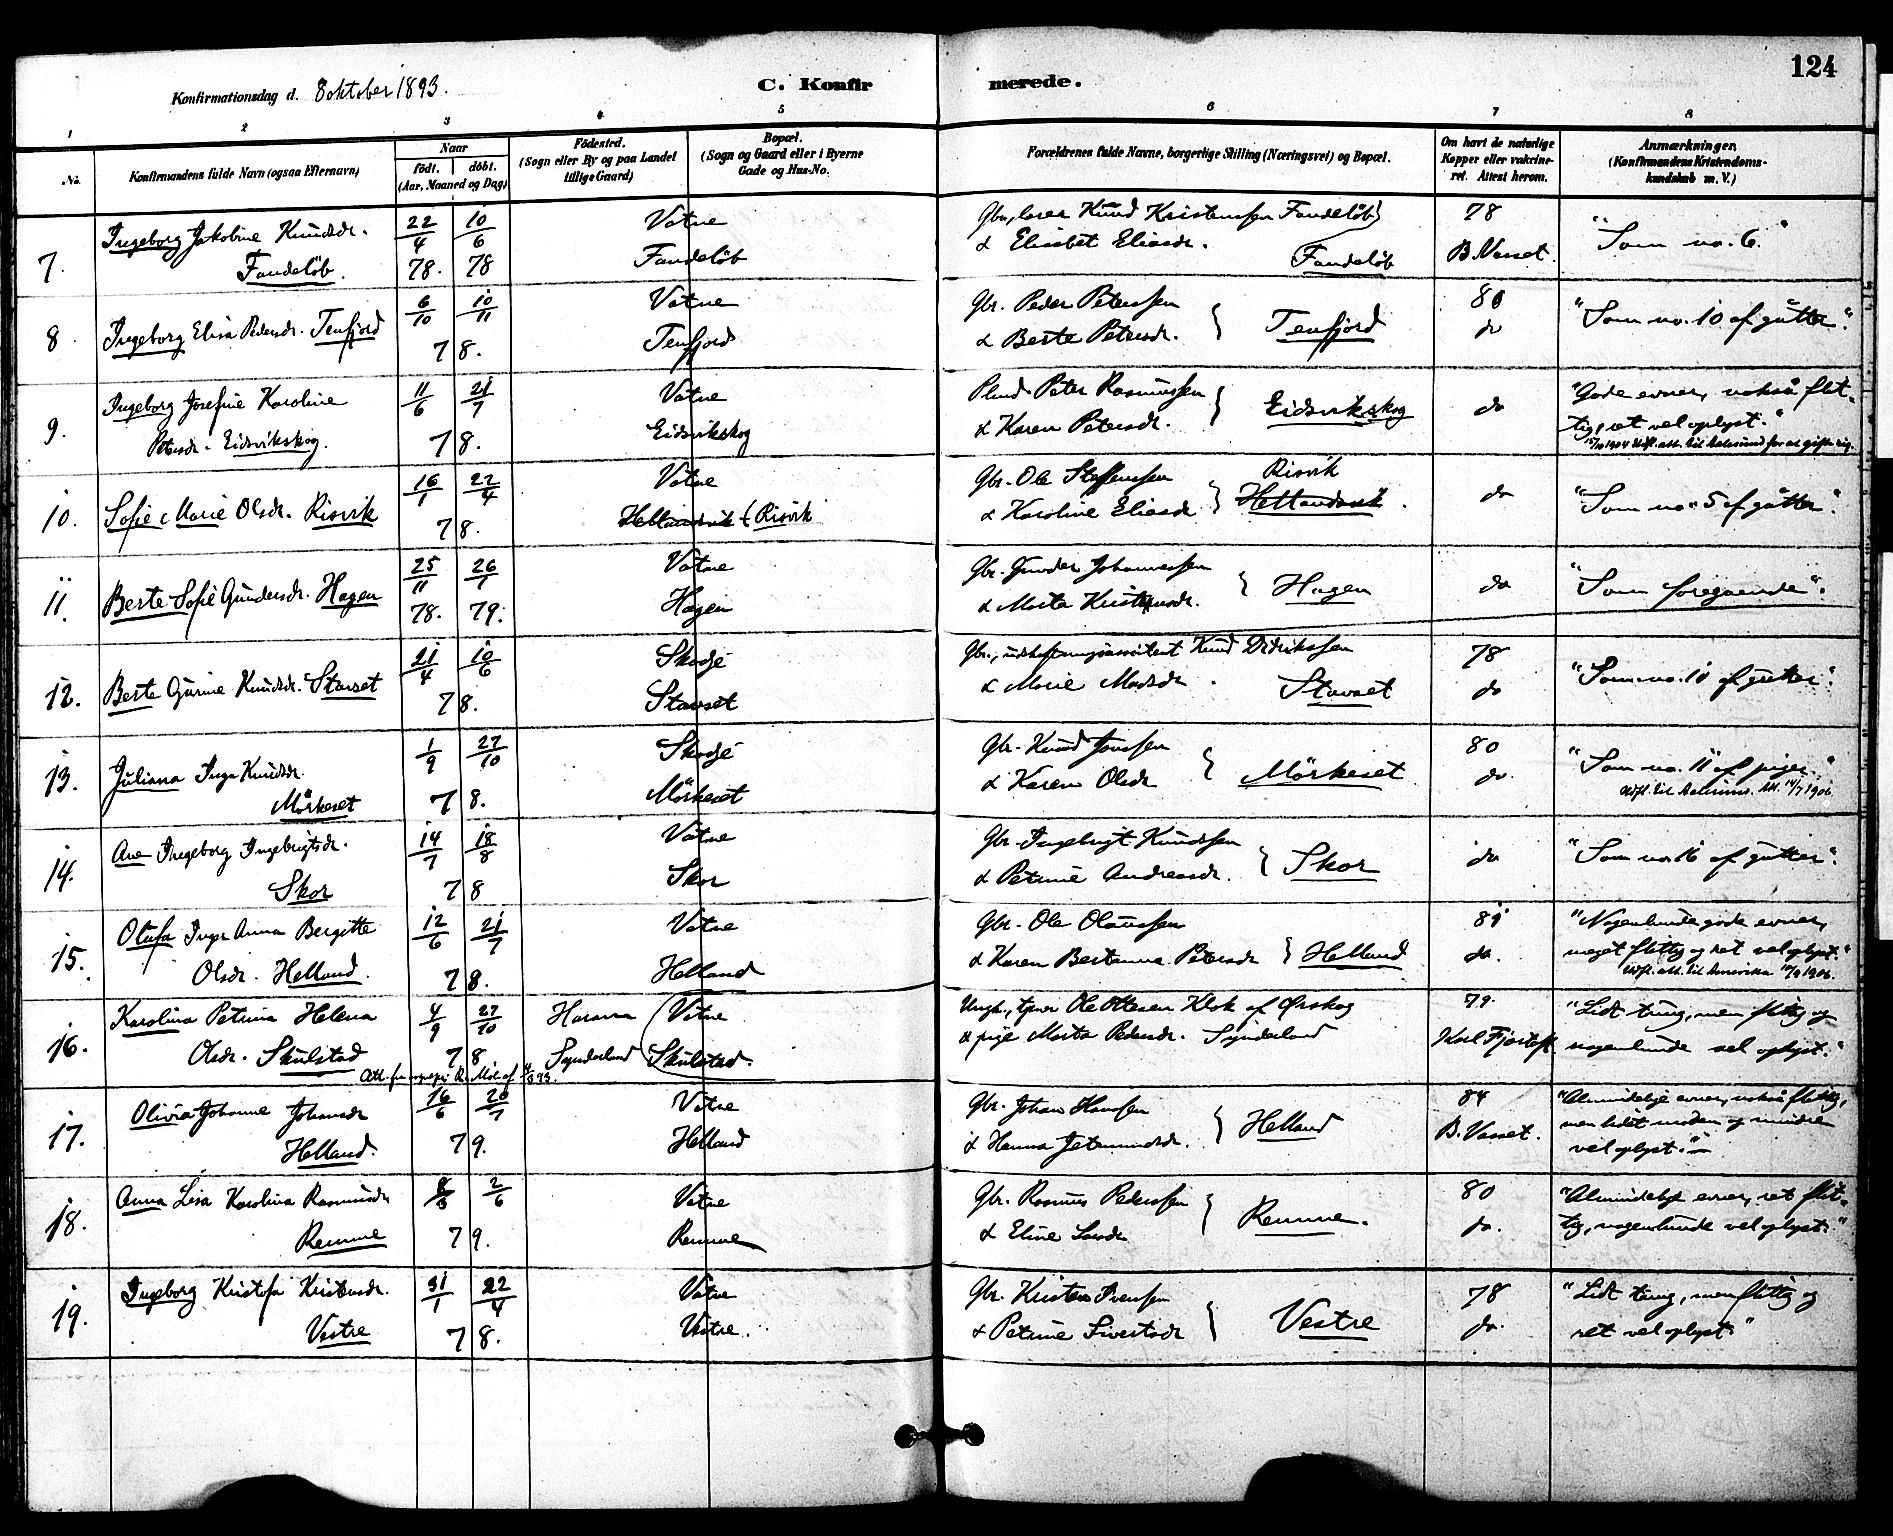 124
Konfirmationsdag d. 8 oktober 1893.
C. Konfirmerede.
1 2 3 4 5 6 7 8
No.
Konfirmandens fulde Navn (ogsaa Efternavn)
Naar
født. døbt.
(Aar, Maaned og Dag)
Fødested.
(Sogn eller By og paa Landet
tillige Gaard)
Bopæl.
(Sogn og Gaard eller i Byerne
Gade og Hus-No.
Forældrenes fulde Navne, borgerlige Stilling (Næringsvei) og Bopæl.
Om havt de naturlige
Kopper eller vakcine-
ret. Attest herom.
Anmærkninger.
(Konfirmandens Kristendoms-
kundskab m. V.)
7. Ingeborg Jakobine Knudsdr. 22/4 10/6 Vatne Gbr., lærer Knud Kristensen Fandeløb 78 "Som no. 6."
Fandeløb. 78. 78 Fandeløb & Elisabet Eliasdr. Fandeløb B. Vasset.
8. Ingeborg Elisa Pedersdr. Tenfjord 6/10 10/11 Vatne Gbr. Peder Peterssen 80 "Som no. 10 af gutter."
78. Tenfjord & Berte Petersdr. Tenfjord do
9. Ingeborg Josefine Karoline 11/6 21/7 Vatne Peter Rasmussen Eidsvikskog do "Gode evner, også flit-
Petersdr. Eidsvikskog. 78. Eidsvikskog & Karen Petersdr. tig, ret vel oplyst."
Udfl. att. til Aalesund for at gifte sig.
10. Sofie Marie Olsdr. Risvik 16/1 22/4 Vatne Gbr. Ole Steffenssen Risvik do "Som no. 5 af gutter."
78. Hellandsvik Risvik & Karoline Eliasdr Hellandsvik.
11. Berte Sofie Gundersdr. Hagen 25/11 26/1 Vatne Gbr. Gunder Johannessen Hagen do "Som foregaaende".
78. 79. Hagen & Marta Kristensdr.
12. Berte Gurine Knudsdr. Stavset 21/4 10/6 Skodje Gbr., Knud Didrikssen 78 "Som no. 10 af gutter."
78. Stavset & Marie Madsdr. Stavset do
13. Juliana Inga Knudsdr. 1/9 27/10 Skodje Gbr. Knud Jonssen 80 "Som no. 11 af piger."
Mørkeset 78. Mørkeset & Karen Olsdr Mørkeset do. Udfl. til Aalesund. Att. 14/7 1906.
14. Ane Ingeborg Ingebrigtsdr. 14/7 18/8 Vatne Gbr. Ingebrigt Knudssen do "Som no. 16 af gutter."
Skor 78 Skor & Petrine Andreasdr. Skor
15. Olufa Inga Anna Bergitte 12/6 21/7 Vatne Gbr. Ole Olaussen 81 "Nogenlunde gode evner,
Olsdr. Helland. 78. Helland & Karen Bertanna Petersdr Helland do. meget flittig og ret vel oplyst."
Udfl. att. til Amerika 1906.
16. Karolina Petrina Helena 4/9 27/10 Harams Vatne Ungk., tjener Ole Ottesen Klok af Ørskog 79. "Lidt tung, men flittig og
Olsdr. Skulstad 78 Synderland Skulstad. & pige Marta Pedersdr. Synderland Karl Fjørtoft nogenlunde vel oplyst."
17. Olivia Johanne Johansdr 16/6 20/7 Vatne Gbr. Johan Hanssen 84 "Almindelige evner, også flittig,
Helland. 79. Helland & Hanna Jetmundsdr. Helland B. Vasset. men lidet moden og mindre
vel oplyst."
18. Anna Lisa Karolina Rasmusdr 2/6 Vatne Gbr. Rasmus Pederssen 80 "Almindelige evner, ret flit-
Remme 79. Remme & Eline Larsdr Remme. do. tig, nogenlunde vel oplyst."
19. Ingeborg Kristofa Kristensdr. 31/1 22/4 Vatne Gbr. Kristen Iverssen 78 "Lidt tung, men flittig og
Vestre 78. Vestre. & Petrine Sivertsdr Vestre do. ret vel oplyst."